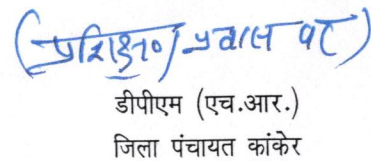 (प्रशिक्षण/प्रवास पर)
डीपीएम (एच.आर.)
जिला पंचायत कांकेर